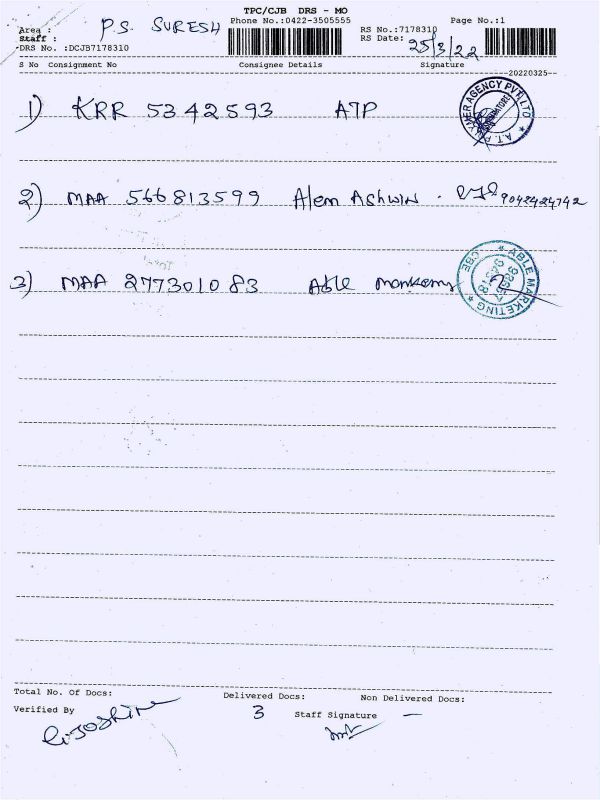 TPC/CJB DRS - MO
Phone No.:0422-3505555
Page No.:1
Area :
Staff :
P.S. SURESH
RS No.:7178310
RS Date: 25/3/22
DRS No. :DCJB7178310
S No Consignment No Consignee Details Signature
20220325
1) KRR 5342593 ATP
2) MAA 566813599 Alem Ashwin . 9042424742
3) MAA 277301083 Able
ABLE MARKETING * CBE *
Total No. Of Docs:
Delivered Docs:
Non Delivered Docs:
Verified By
3
Staff Signature
—